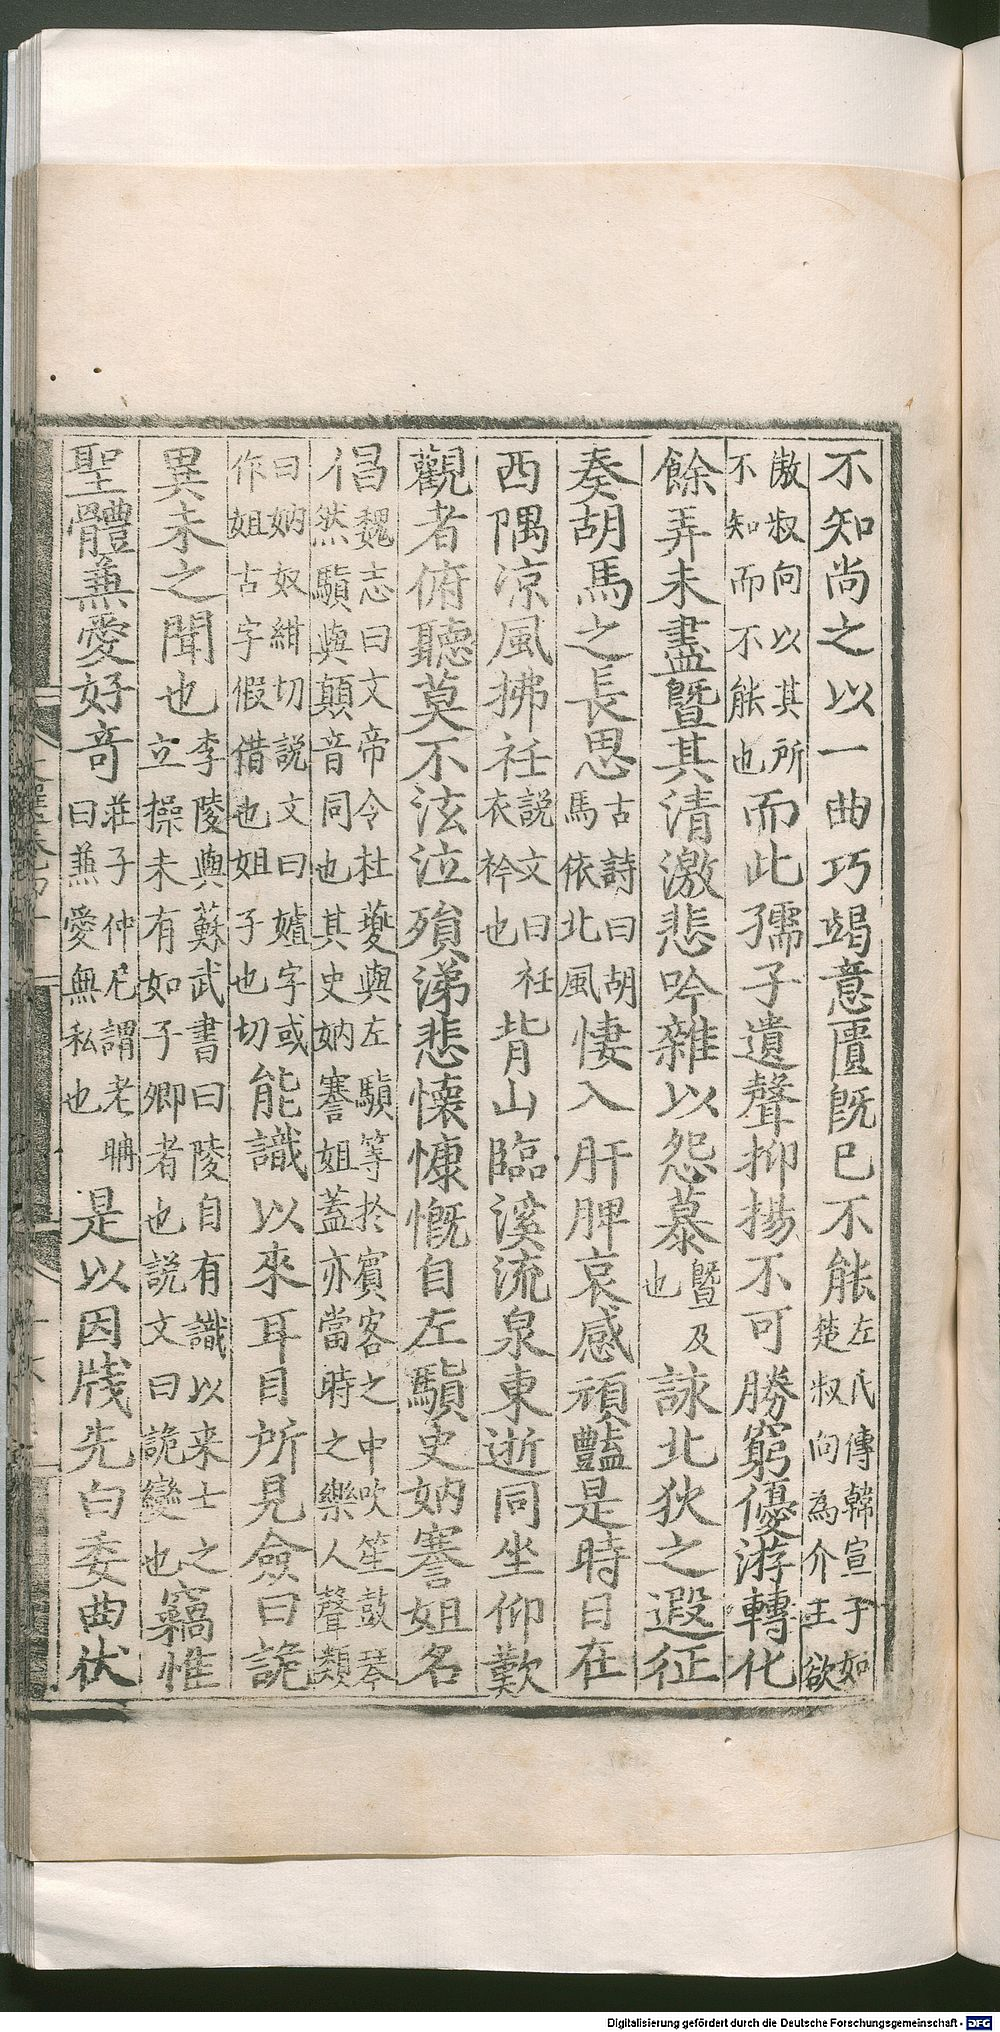 不知尚之以一曲巧竭意匱既已不能左氏傳韓宣子如楚叔向為介王欲
敖叔向以其所不知而不能也而此孺子遺聲抑揚不可勝窮優游轉化
餘弄未盡暨其清激悲吟雜以怨慕暨及也詠北狄之遐征
奏胡馬之長思古詩曰胡馬依北風悽入肝脾哀感頑豔是時日在
西隅凉風拂衽說文曰衽衣衿也背山臨溪流泉東逝同坐仰歎
觀者俯聽莫不泫泣殞涕悲懷慷慨自左騏史妠謇姐名
倡魏志曰文帝令杜夔與左騏等於賓客之中吹笙鼓琴然騏與顛音同也其史妠謇姐蓋亦當時之樂人聲類
曰妠奴紺切說文曰嫭字或作姐古字假借也姐子也切能識以來耳目所見僉曰詭
異未之聞也李陵與蘇武書曰陵自有識以来士之立操未有如子卿者也說文曰詭變也竊惟
聖體蒹愛好奇莊子仲尼謂老聃曰蒹愛無私也是以因牋先白委曲伏
Digitalisierung gefördert durch die Deutsche Forschungsgemeinschaft - DFG